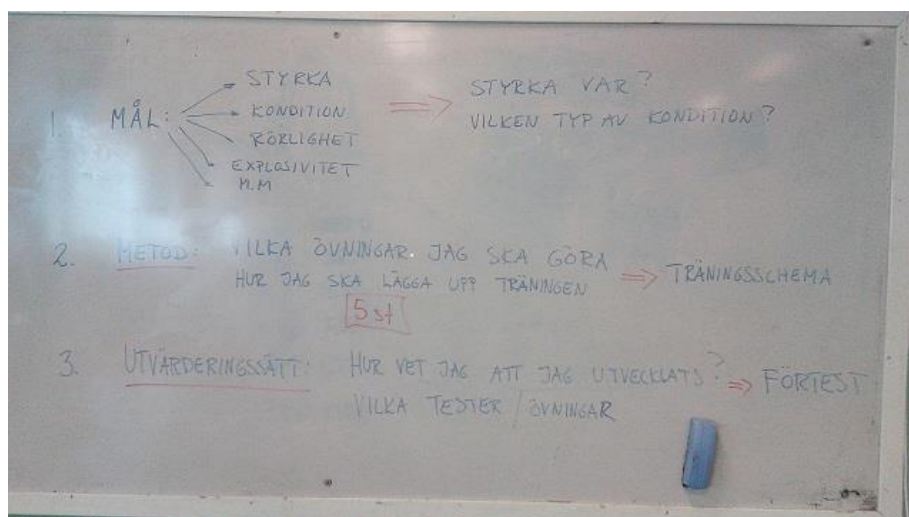 1. MÅL: STYRKA
KONDITION
RÖRLIGHET
EXPLOSIVITET
M.M
STYRKA VAR?
VILKEN TYP AV KONDITION?
2. METOD: VILKA ÖVNINGAR JAG SKA GÖRA
HUR JAG SKA LÄGGA UPP TRÄNINGEN
TRÄNINGSSCHEMA
5 st
3. UTVÄRDERINGSSÄTT: HUR VET JAG ATT JAG UTVECKLATS?
VILKA TESTER / ÖVNINGAR
FÖRTEST